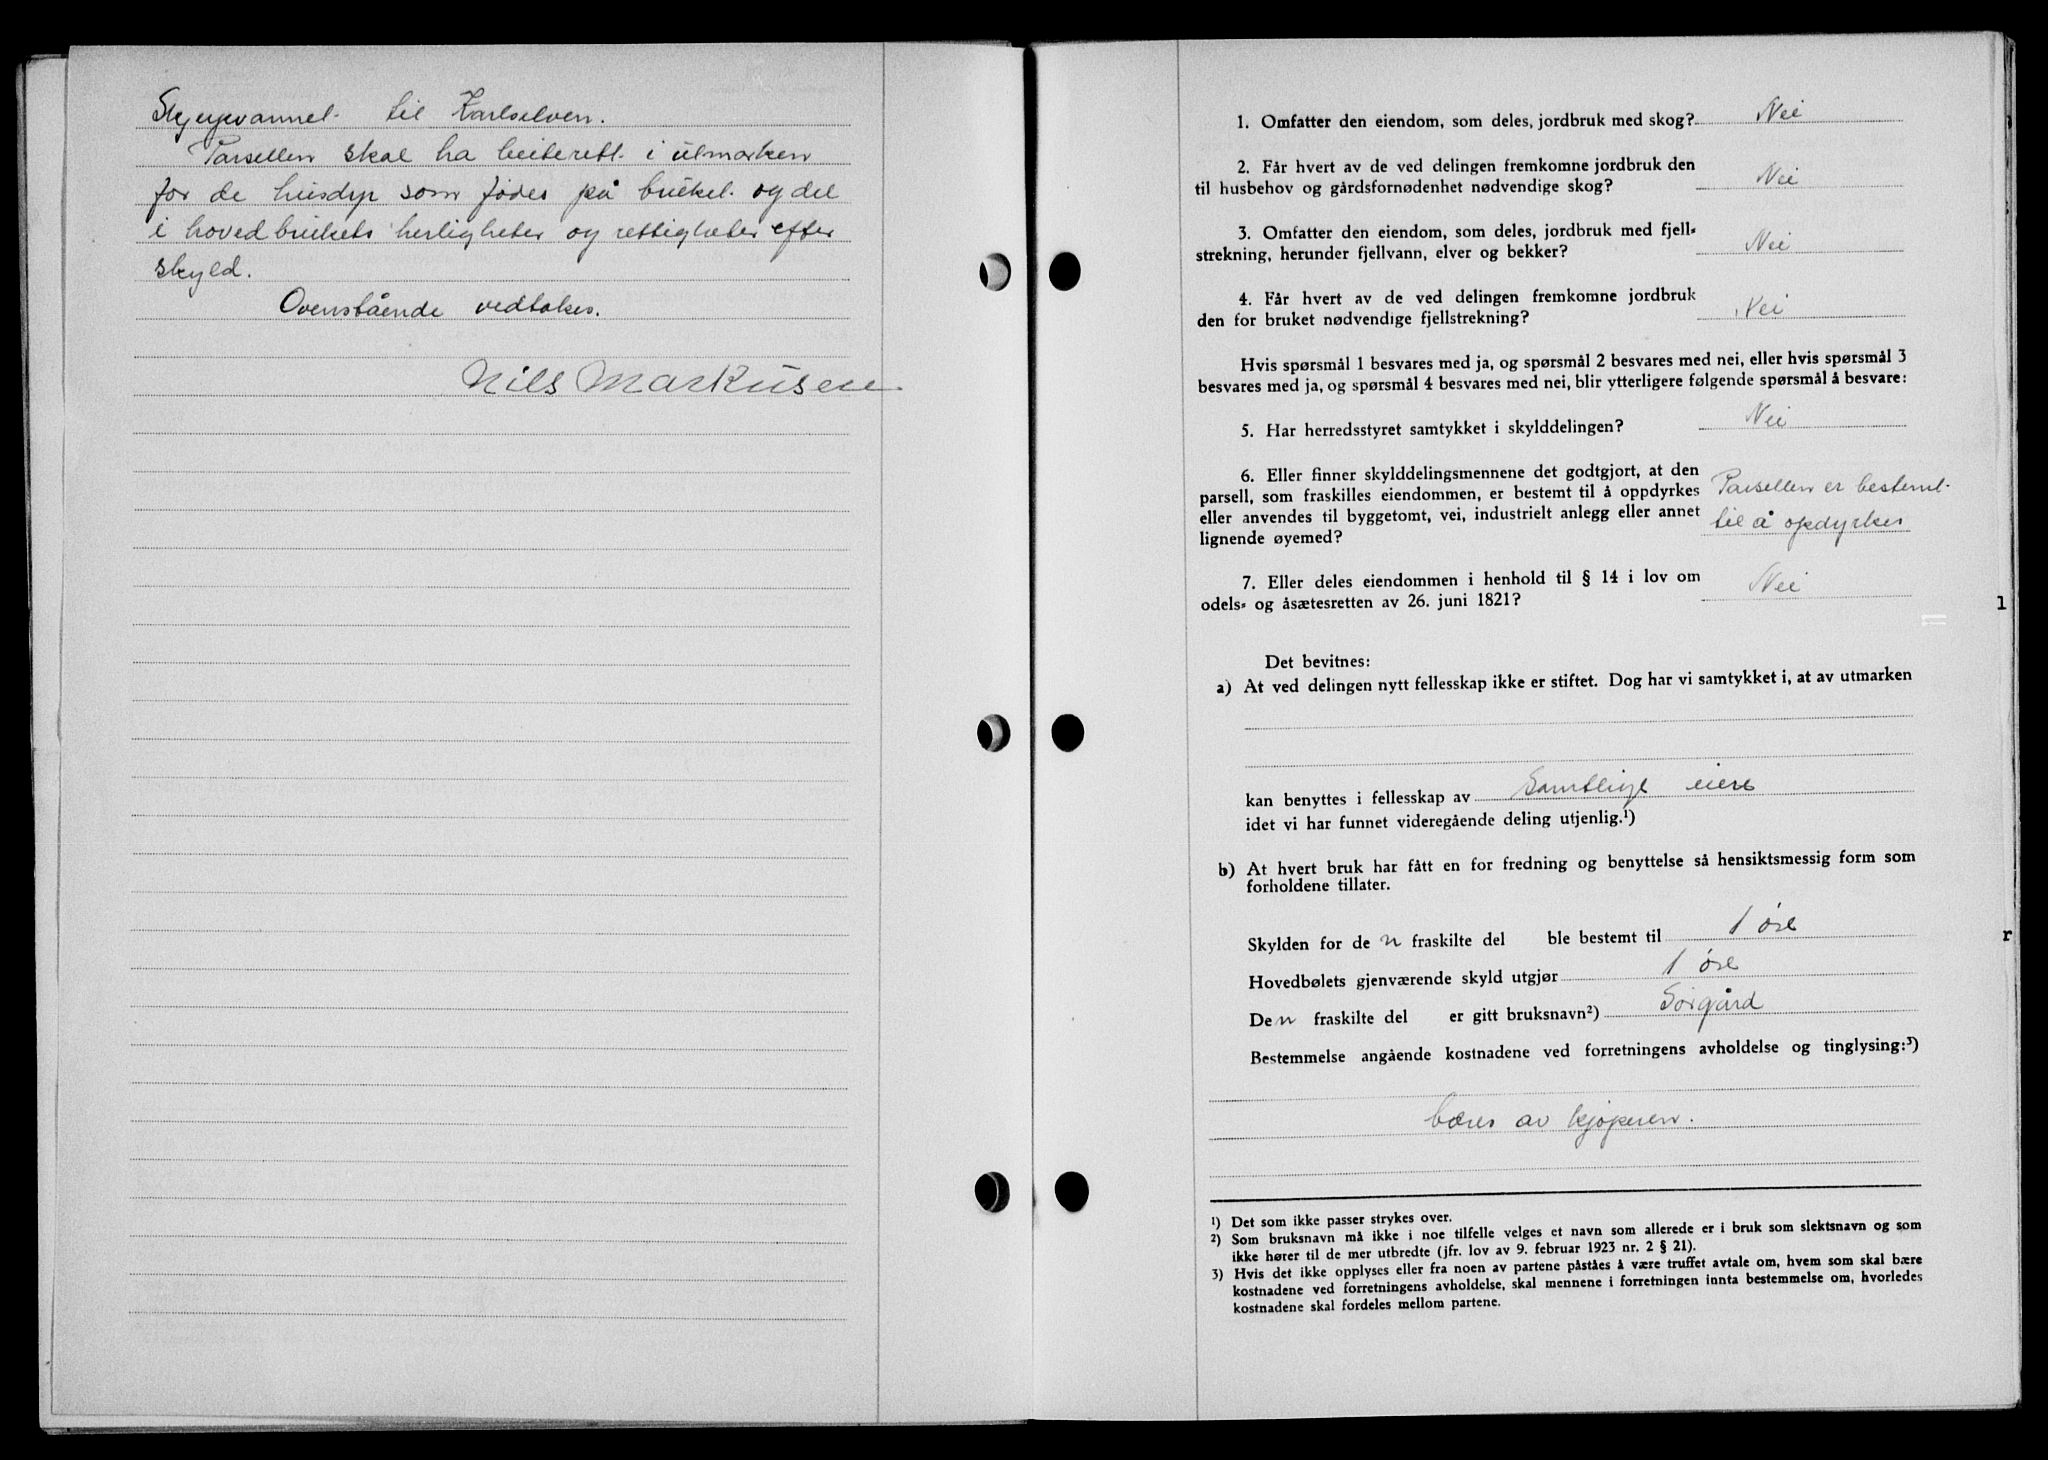 til Karlselven.
Parsellen skal ha beiterett i utmarken
for de husdyr som fødes på bruket og del
i hovedbrukets herligheter og rettigheter efter
skyld.
Ovenstående vedtokes.
Nils Markusen
1. Omfatter den eiendom, som deles, jordbruk med skog? Nei
2. Får hvert av de ved delingen fremkomne jordbruk den
til husbehov og gårdsfornødenhet nødvendige skog? Nei
3. Omfatter den eiendom, som deles, jordbruk med fjell-
strekning, herunder fjellvann, elver og bekker? Nei
4. Får hvert av de ved delingen fremkomne jordbruk
den for bruket nødvendige fjellstrekning? Nei
Hvis spørsmål 1 besvares med ja, og spørsmål 2 besvares med nei, eller hvis spørsmål 3
besvares med ja, og spørsmål 4 besvares med nei, blir ytterligere følgende spørsmål å besvare:
5. Har herredsstyret samtykket i skylddelingen? Nei
6. Eller finner skylddelingsmennene det godtgjort, at den
parsell, som fraskilles eiendommen, er bestemt til å oppdyrkes Parsellen er bestemt
eller anvendes til byggetomt, vei, industrielt anlegg eller annet til å opdyrkes
lignende øyemed?
7. Eller deles eiendommen i henhold til § 14 i lov om
odels- og åsætesretten av 26. juni 1821? Nei
Det bevitnes:
a) At ved delingen nytt fellesskap ikke er stiftet. Dog har vi samtykket i, at av utmarken
kan benyttes i fellesskap av Samtlige eiere
idet vi har funnet videregående deling utjenlig.¹)
b) At hvert bruk har fått en for fredning og benyttelse så hensiktsmessig form som
forholdene tillater.
Skylden for de n fraskilte del ble bestemt til 1 øre
Hovedbølets gjenværende skyld utgjør 1 øre
De n fraskilte del er gitt bruksnavn²) Sørgård
Bestemmelse angående kostnadene ved forretningens avholdelse og tinglysing:³)
bæres av kjøperen.
¹) Det som ikke passer strykes over.
²) Som bruksnavn må ikke i noe tilfelle velges et navn som allerede er i bruk som slektsnavn og som
ikke hører til de mer utbredte (jfr. lov av 9. februar 1923 nr. 2 § 21).
³) Hvis det ikke opplyses eller fra noen av partene påståes å være truffet avtale om, hvem som skal bære
kostnadene ved forretningens avholdelse, skal mennene i forretningen innta bestemmelse om, hvorledes
kostnadene skal fordeles mellom partene.
l
r